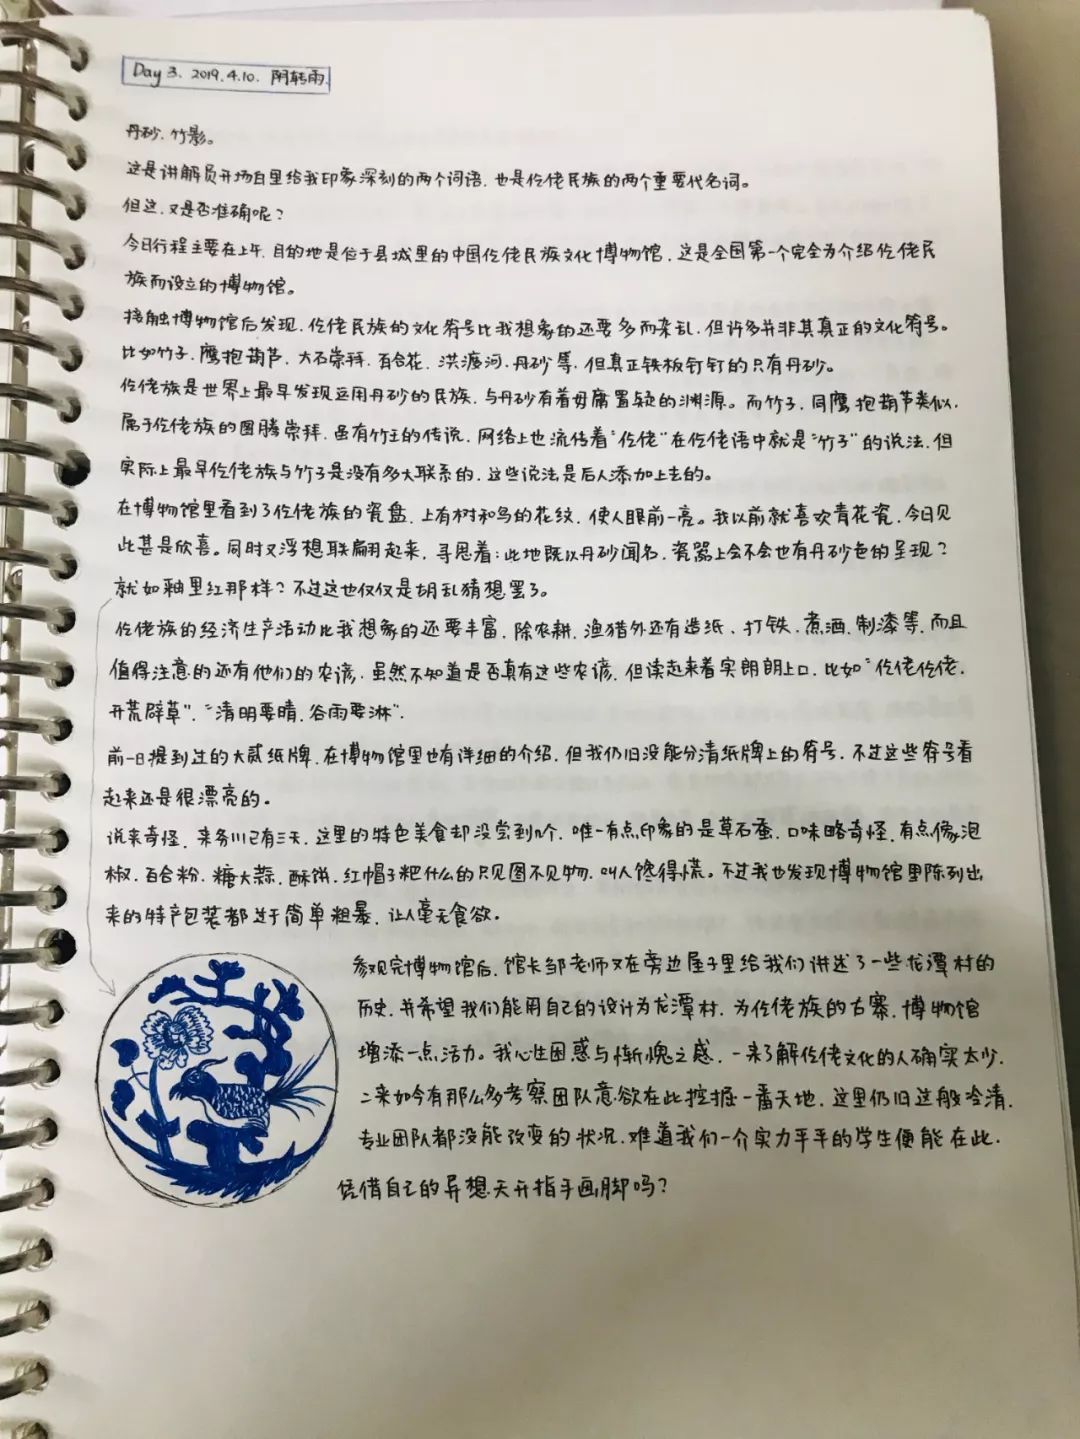 Day 3. 2019.4.10. 阴转雨.
丹砂.竹影。
这是讲解员开场白里给我印象深刻的两个词语.也是仡佬民族的两个重要代名词。
但这.又是否准确呢？
今日行程主要在上午.目的地是位于县城里的中国仡佬民族文化博物馆.这是全国第一个完全为介绍仡佬民
族而设立的博物馆。
接触博物馆后发现.仡佬民族的文化符号比我想象的还要多而杂乱.但许多并非其真正的文化符号。
比如竹子.鹰抱葫芦.大石崇拜.百合花.洪渡河.丹砂等.但真正铁板钉钉的只有丹砂。
仡佬族是世界上最早发现运用丹砂的民族.与丹砂有着毋庸置疑的渊源。而竹子.同鹰抱葫芦类似.
属于仡佬族的图腾崇拜.虽有竹王的传说.网络上也流传着“仡佬”在仡佬语中就是“竹子”的说法.但
实际上最早仡佬族与竹子是没有多大联系的.这些说法是后人添加上去的。
在博物馆里看到了仡佬族的瓷盘.上有树和鸟的花纹.使人眼前一亮。我以前就喜欢青花瓷.今日见
此甚是欣喜。同时又浮想联翩起来.寻思着：此地既以丹砂闻名.瓷器上会不会也有丹砂色的呈现？
就如釉里红那样？不过这也仅仅是胡乱猜想罢了。
仡佬族的经济生产活动比我想象的还要丰富.除农耕.渔猎外还有造纸、打铁.煮酒.制漆等.而且
值得注意的还有他们的农谚.虽然不知道是否真有这些农谚.但读起来着实朗朗上口.比如“仡佬仡佬.
开荒辟草”.“清明要晴.谷雨要淋”.
前一日提到过的大贰纸牌.在博物馆里也有详细的介绍.但我仍旧没能分清纸牌上的符号.不过这些符号看
起来还是很漂亮的。
说来奇怪.来务川已有三天.这里的特色美食却没尝到几个.唯一有点印象的是草石蚕.口味略奇怪.有点像泡
椒.百合粉.糖大蒜.酥饼.红帽子粑什么的只见图不见物.叫人馋得慌。不过我也发现博物馆里陈列出
来的特产包装都过于简单粗暴.让人毫无食欲。
参观完博物馆后.馆长邹老师又在旁边屋子里给我们讲述了一些龙潭村的
历史.并希望我们能用自己的设计为龙潭村.为仡佬族的古寨.博物馆
增添一点活力。我心生困惑与惭愧之感.一来了解仡佬文化的人确实太少.
二来如今有那么多考察团队意欲在此挖掘一番天地.这里仍旧这般冷清.
专业团队都没能改变的状况.难道我们一介实力平平的学生便能在此.
凭借自己的异想天开指手画脚吗？